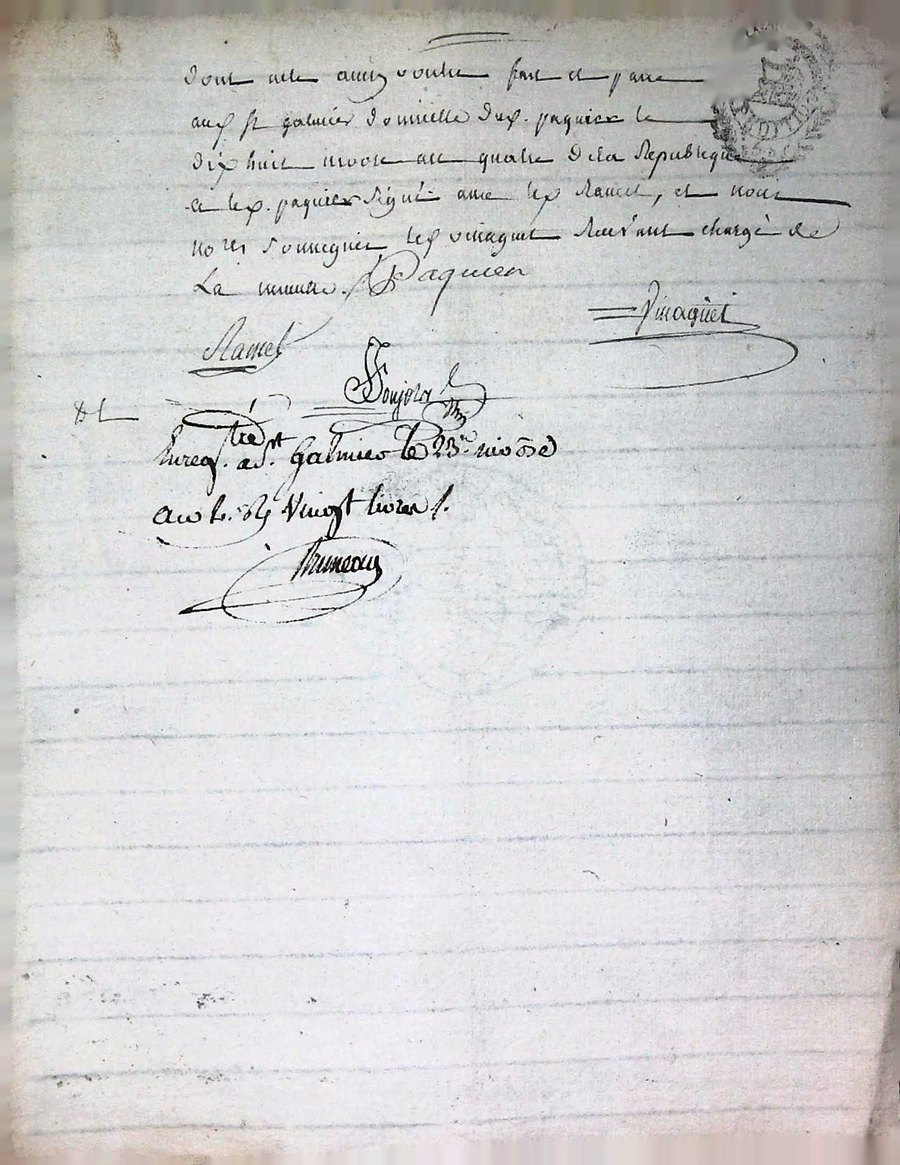 dont acte ainsy voulu fait et passé
aud st galmier domicille dud. paquier le
dix huit nivose an quatre de la Republique
et led. paquier signé avec led Ramel, et nous
nores soussignés led vinaguet Recevant chargé de
La minutte. Paquier
Vinaguet
Ramel
Enregtré. a St. Galmier le 23e. nivôse
an 4. Vingt livres
Bruneau